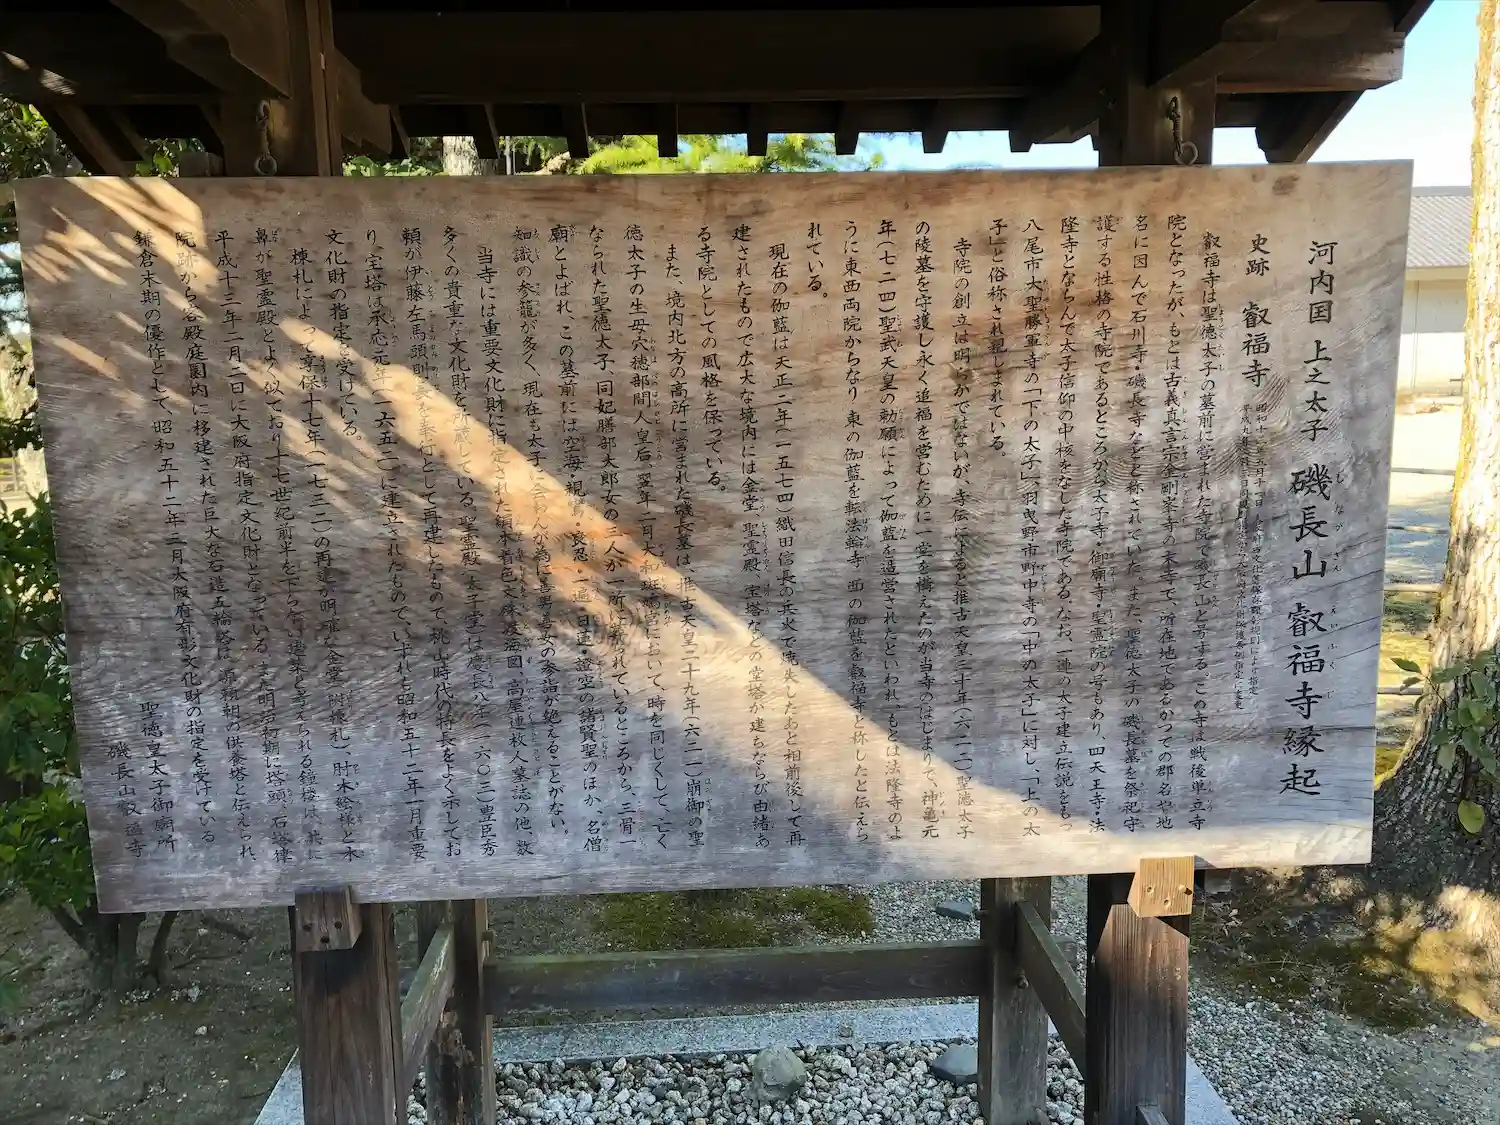 河内国 上之太子 磯長山 叡福寺縁起
史跡 叡福寺
叡福寺は聖徳太子の墓前に営まれた寺院で磯長山と号する。この寺は戦後単立寺
院となったが、もとは古義真言宗金剛峯寺の末寺で、所在地であるかつての郡名や地
名に因んで石川寺・磯長寺などと称されていた。また、聖徳太子の磯長墓を祭祀守
護する性格の寺院であるところから太子寺・御廟寺・聖霊院の号もあり、四天王寺・法
隆寺とならんで太子信仰の中核をなした寺院である。なお、一連の太子建立伝説をもつ
八尾市大聖勝軍寺の「下の太子」、羽曳野市野中寺の「中の太子」に対し、「上の太
子」と俗称され親しまれている。
寺院の創立は明らかではないが、寺伝によると推古天皇三十年(六二二)聖徳太子
の陵墓を守護し永く追福を営むために一堂を構えたのが当寺のはじまりで、神亀元
年(七二四)聖武天皇の勅願によって伽藍を造営されたといわれ、もとは法隆寺のよ
うに東西両院からなり 東の伽藍を転法輪寺 西の伽藍を叡福寺と称したと伝えら
れている。
現在の伽藍は天正二年(一五七四)織田信長の兵火で焼失したあと相前後して再
建されたもので広大な境内には金堂 聖霊殿 宝塔などの堂塔が建ちならび由緒あ
る寺院としての風格を保っている。
また、境内北方の高所に営まれた磯長墓は、推古天皇二十九年(六二一)崩御の聖
徳太子の生母穴穂部間人皇后、翌年二月大和斑鳩宮において、時を同じくして、亡く
なられた聖徳太子、同妃膳部大郎女の三人が一所に葬られているところから、三骨一
廟とよばれ、この墓前には空海・親鸞・良忍・一遍・日蓮・證空の諸賢聖のほか、名僧
知識の参籠が多く、現在も太子に会わんが為に善男善女の参詣が絶えることがない。
当寺には重要文化財に指定された絹本着色文殊渡海図、高屋連枚人墓誌の他、数
多くの貴重な文化財を所蔵している。聖霊殿(太子堂)は慶長八年(一六〇三)豊臣秀
頼が伊藤左馬頭則長を奉行として再建したもので、桃山時代の特長をよく示してお
り、宝塔は承応元年(一六五二)に建立されたもので、いずれも昭和五十二年一月重要
文化財の指定を受けている。
棟札によって享保十七年(一七三二)の再建が明確な金堂(附棟札)、肘木絵様と木
鼻が聖霊殿とよく似ており十七世紀前半を下らない建築と考えられる鐘楼は、共に
平成十三年二月二日に大阪府指定文化財となっている。また明治初期に塔頭、石逢律
院跡から客殿庭園内に移建された巨大な石造五輪塔は、源頼朝の供養塔と伝えられ、
鎌倉末期の優作として、昭和五十二年三月大阪府有形文化財の指定を受けている
聖徳皇太子御廟所
磯長山叡福寺